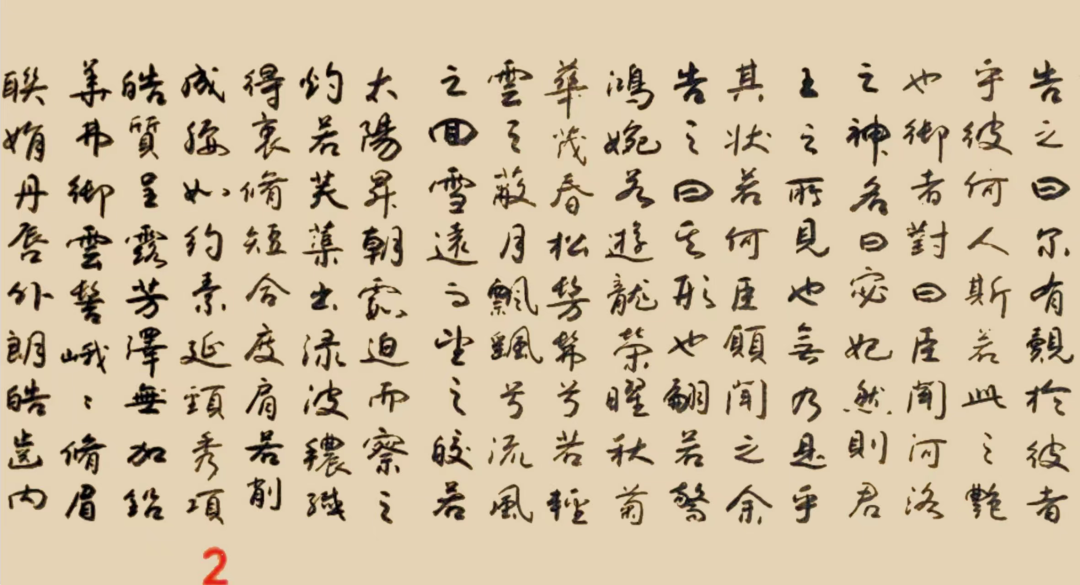 告之曰尔有覿於彼者
乎彼何人斯若此之艷
也御者對曰臣聞河洛
之神名曰宓妃然則君
王之所見也無乃是乎
其状若何臣願聞之余
告之曰其形也翩若驚
鴻婉若遊龍榮曜秋菊
華茂春松髣髴兮若輕
雲之蔽月飄颻兮流風
之回雪遠而望之皎若
太陽昇朝霞迫而察之
灼若芙蕖出渌波穠纖
得衷脩短合度肩若削
成腰如約素延頸秀項
皓質呈露芳澤無加鉛
華弗御雲髻峨〻脩眉
聯娟丹唇外朗皓齒内
2